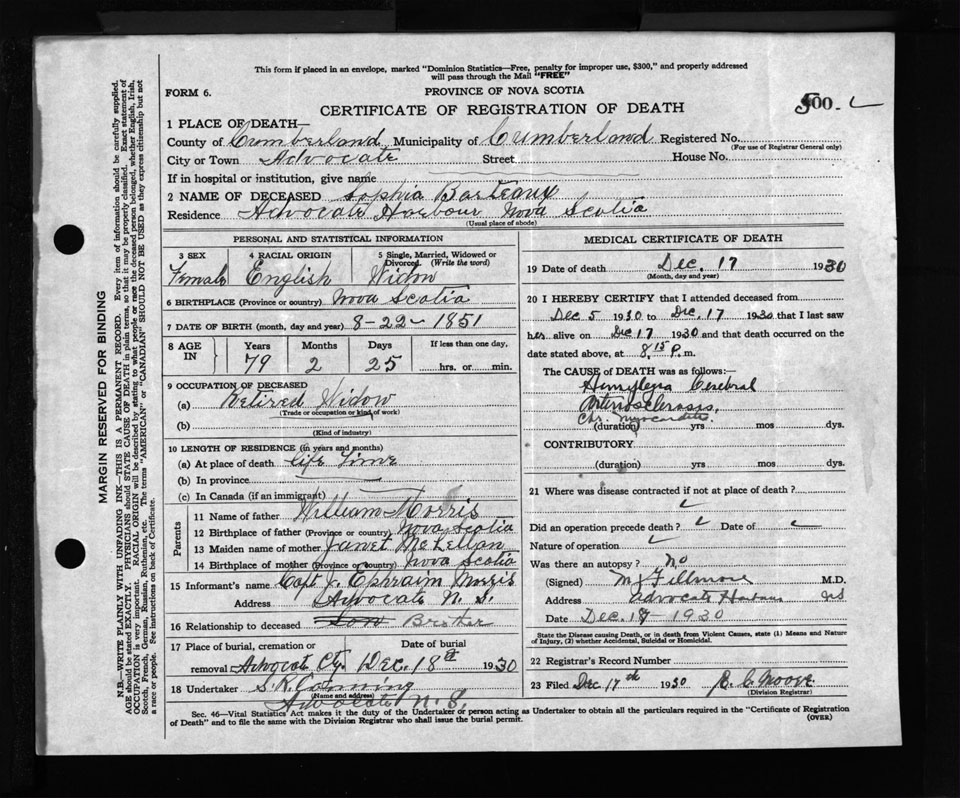 This form if placed in an envelope, marked "Dominion Statistics—Free, penalty for improper use, $300," and properly addressed
will pass through the Mail "FREE"
FORM 6.
PROVINCE OF NOVA SCOTIA
CERTIFICATE OF REGISTRATION OF DEATH
500
1 PLACE OF DEATH—
County of Cumberland Municipality of Cumberland Registered No.
(For use of Registrar General only)
City or Town Advocate Street House No.
If in hospital or institution, give name
2 NAME OF DECEASED Sophia Barteaux
Residence Advocate Harbour Nova Scotia
(Usual place of abode)
PERSONAL AND STATISTICAL INFORMATION
3 SEX 4 RACIAL ORIGIN 5 Single, Married, Widowed or
Divorced. (Write the word)
Female English Widow
6 BIRTHPLACE (Province or country) Nova Scotia
7 DATE OF BIRTH (month, day and year) 8-22-1851
8 AGE IN Years Months Days If less than one day,
79 2 25 hrs. or min.
9 OCCUPATION OF DECEASED
(a) Retired Widow
(Trade or occupation or kind of work)
(b)
(Kind of industry)
10 LENGTH OF RESIDENCE (in years and months)
(a) At place of death life time
(b) In province
(c) In Canada (if an immigrant)
Parents
11 Name of father William Morris
12 Birthplace of father (Province or country) Nova Scotia
13 Maiden name of mother Janet McLellan
14 Birthplace of mother (Province or country) Nova Scotia
15 Informant's name Capt J. Ephraim Morris
Address Advocate N. S.
16 Relationship to deceased Son Brother
17 Place of burial, cremation or Date of burial
removal Advocate Cty. Dec. 18th 1930
18 Undertaker S. K. Canning
(Name and address)
Advocate N. S.
MEDICAL CERTIFICATE OF DEATH
19 Date of death Dec. 17 1930
(Month, day and year)
20 I HEREBY CERTIFY that I attended deceased from
Dec 5 1930 to Dec. 17 1930 that I last saw
her alive on Dec 17 1930 and that death occurred on
date stated above, at 8.15 P. m.
The CAUSE of DEATH was as follows:—
Cerebral
Arteriosclerosis,
Chr. Myocarditis.
(duration) yrs mos dys.
CONTRIBUTORY
(duration) yrs mos dys.
21 Where was disease contracted if not at place of death?
Did an operation precede death? Date of
Nature of operation
Was there an autopsy? No
(Signed) M. Fillmore M.D.
Address Advocate Harbour NS
Date Dec. 1930
State the Disease causing Death, or in death from Violent Causes, state (1) Means and Nature
of Injury, (2) whether Accidental, Suicidal or Homicidal.
22 Registrar's Record Number
23 Filed Dec 17th 1930 Moore
(Division Registrar)
Sec. 46—Vital Statistics Act makes it the duty of the Undertaker or person acting as Undertaker to obtain all the particulars required in the "Certificate of Registration
of Death" and to file the same with the Division Registrar who shall issue the burial permit.
(OVER)
MARGIN RESERVED FOR BINDING
N.B.—WRITE PLAINLY WITH UNFADING INK—THIS IS A PERMANENT RECORD. Every item of information should be carefully supplied.
AGE should be stated EXACTLY. PHYSICIANS should STATE CAUSE OF DEATH in plain terms, so that it may be properly classified. Exact statement of
OCCUPATION is very important. RACIAL ORIGIN will be described by stating to what people or race the deceased person belonged, whether English, Irish,
Scotch, French, German, Russian, Ruthenian, etc. The terms "AMERICAN" or "CANADIAN" SHOULD NOT BE USED as they express citizenship but not
a race or people. See instructions on back of Certificate.